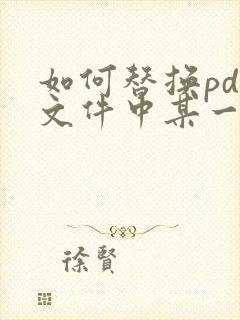 如何替换pd
文件中某一
徐賢